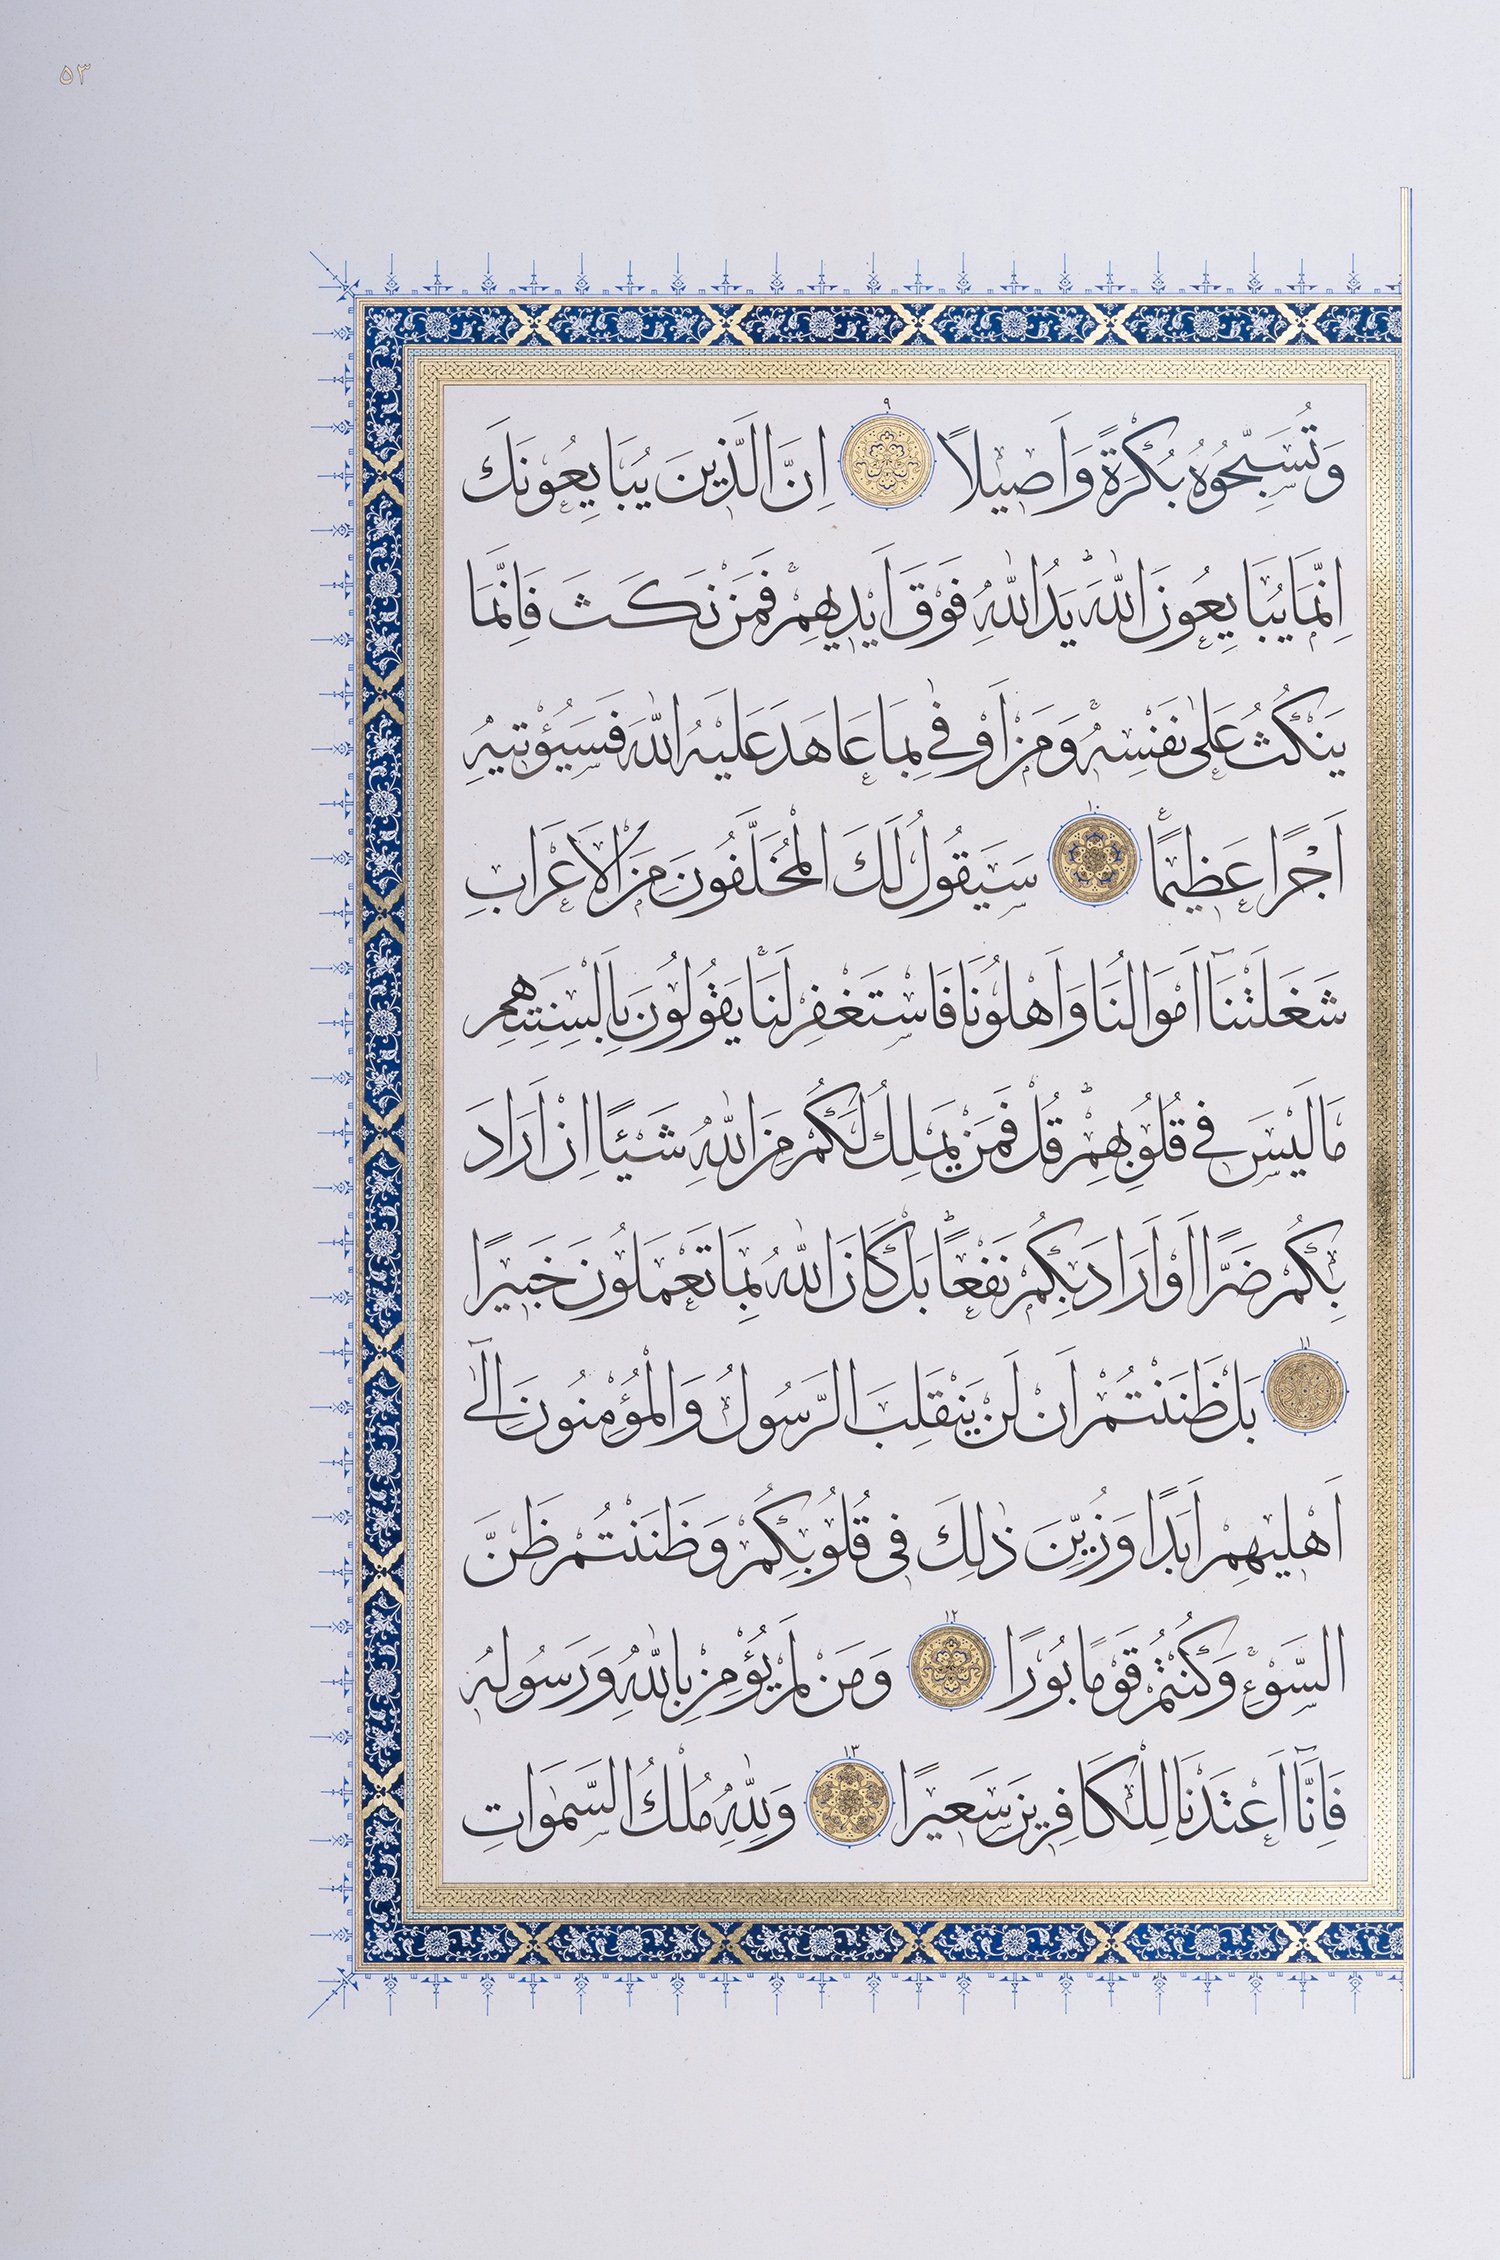 ٥٣
وَتُسَبِّحُوهُ بُكْرَةً وَاَصٖيلًا ٩ اِنَّ الَّذٖينَ يُبَايِعُونَكَ
اِنَّمَا يُبَايِعُونَ اللّٰهَؕ يَدُ اللّٰهِ فَوْقَ اَيْدٖيهِمْۚ فَمَنْ نَكَثَ فَاِنَّمَا
يَنْكُثُ عَلٰى نَفْسِهٖۚ وَمَنْ اَوْفٰى بِمَا عَاهَدَ عَلَيْهُ اللّٰهَ فَسَيُؤْتٖيهِ
اَجْرًا عَظٖيمًاࣖ ١٠ سَيَقُولُ لَكَ الْمُخَلَّفُونَ مِنَ الْاَعْرَابِ
شَغَلَتْنَٓا اَمْوَالُنَا وَاَهْلُونَا فَاسْتَغْفِرْ لَنَاۚ يَقُولُونَ بِاَلْسِنَتِهِمْ
مَا لَيْسَ فٖي قُلُوبِهِمْؕ قُلْ فَمَنْ يَمْلِكُ لَكُمْ مِنَ اللّٰهِ شَيْـًٔا اِنْ اَرَادَ
بِكُمْ ضَرًّا اَوْ اَرَادَ بِكُمْ نَفْعًاؕ بَلْ كَانَ اللّٰهُ بِمَا تَعْمَلُونَ خَبٖيرًا
١١ بَلْ ظَنَنْتُمْ اَنْ لَنْ يَنْقَلِبَ الرَّسُولُ وَالْمُؤْمِنُونَ اِلٰٓى
اَهْلٖيهِمْ اَبَدًا وَزُيِّنَ ذٰلِكَ فٖي قُلُوبِكُمْ وَظَنَنْتُمْ ظَنَّ
السَّوْءِۚ وَكُنْتُمْ قَوْمًا بُورًا ١٢ وَمَنْ لَمْ يُؤْمِنْ بِاللّٰهِ وَرَسُولِهٖ
فَاِنَّٓا اَعْتَدْنَا لِلْكَافِرٖينَ سَعٖيرًا ١٣ وَلِلّٰهِ مُلْكُ السَّمٰوَاتِ